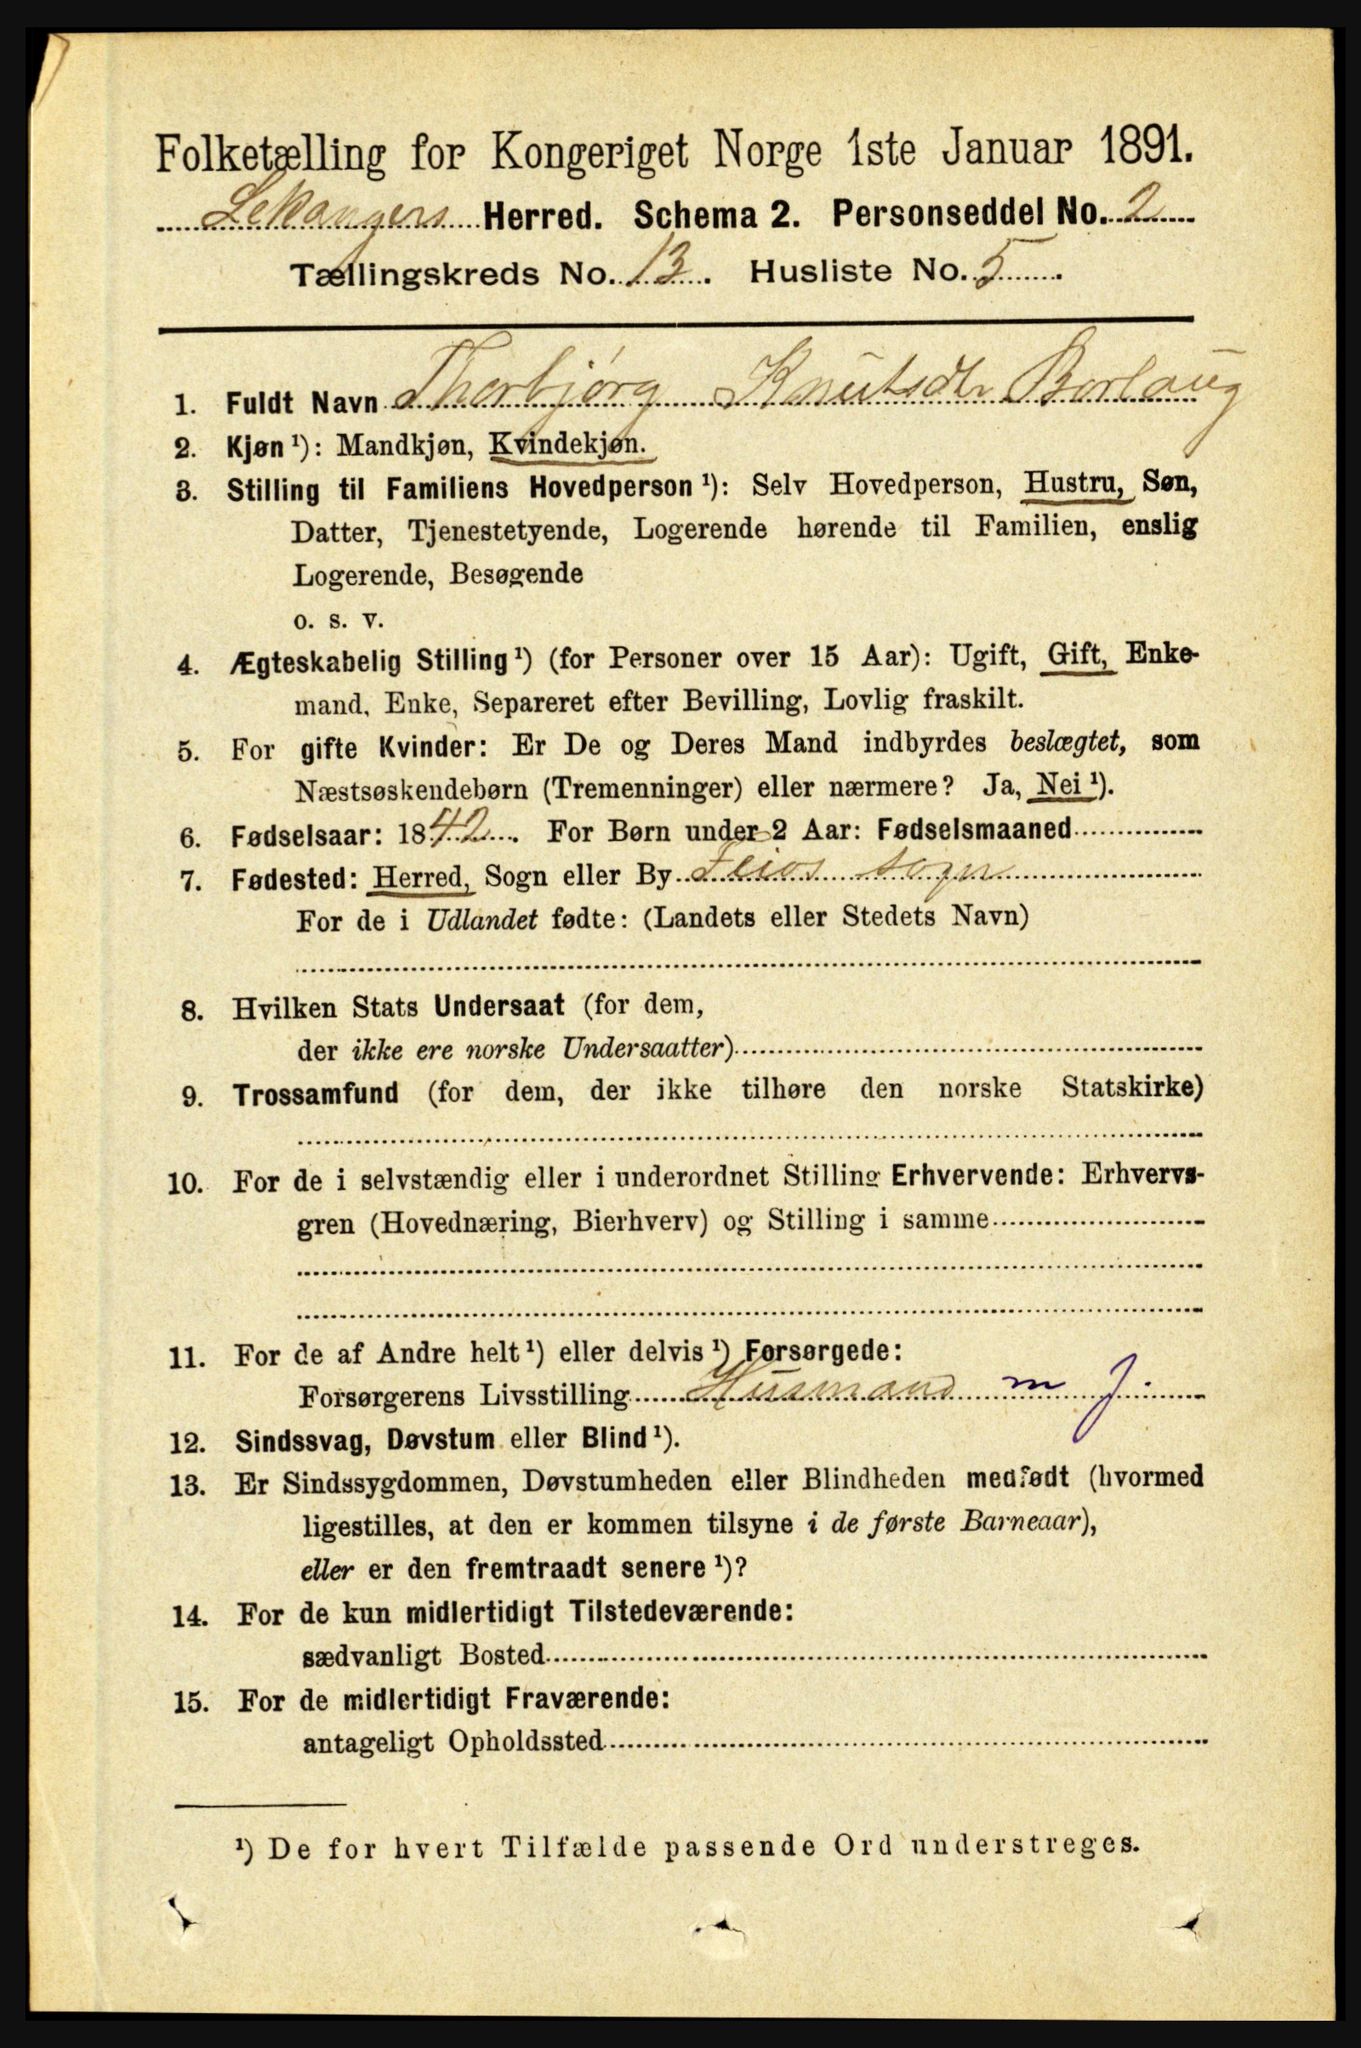 Folketælling for Kongeriget Norge 1ste Januar 1891.
Lekangers Herred. Schema 2. Personseddel No. 2
Tællingskreds No. 13. Husliste No. 5.
1. Fuldt Navn Thorbjørg Knutsdtr Borlaug
2. Kjøn ¹): Mandkjøn, Kvindekjøn.
3. Stilling til Familiens Hovedperson ¹): Selv Hovedperson, Hustru, Søn,
Datter, Tjenestetyende, Logerende hørende til Familien, enslig
Logerende, Besøgende
o. s. v.
4. Ægteskabelig Stilling ¹) (for Personer over 15 Aar): Ugift, Gift, Enke-
mand, Enke, Separeret efter Bevilling, Lovlig fraskilt.
5. For gifte Kvinder: Er De og Deres Mand indbyrdes beslægtet, som
Næstsøskendebørn (Tremenninger) eller nærmere? Ja, Nei ¹).
6. Fødselsaar: 1842. For Børn under 2 Aar: Fødselsmaaned
7. Fødested: Herred, Sogn eller By Feios sogn
For de i Udlandet fødte: (Landets eller Stedets Navn)
8. Hvilken Stats Undersaat (for dem,
der ikke ere norske Undersaatter)
9. Trossamfund (for dem, der ikke tilhøre den norske Statskirke)
10. For de i selvstændig eller i underordnet Stilling Erhvervende: Erhvervs-
gren (Hovednæring, Bierhverv) og Stilling i samme
11. For de af Andre helt ¹) eller delvis ¹) Forsørgede:
Forsørgerens Livsstilling Husmand m J.
12. Sindssvag, Døvstum eller Blind ¹).
13. Er Sindssygdommen, Døvstumheden eller Blindheden medfødt (hvormed
ligestilles, at den er kommen tilsyne i de første Barneaar),
eller er den fremtraadt senere ¹)?
14. For de kun midlertidigt Tilstedeværende:
sædvanligt Bosted
15. For de midlertidigt Fraværende:
antageligt Opholdssted
¹) De for hvert Tilfælde passende Ord understreges.